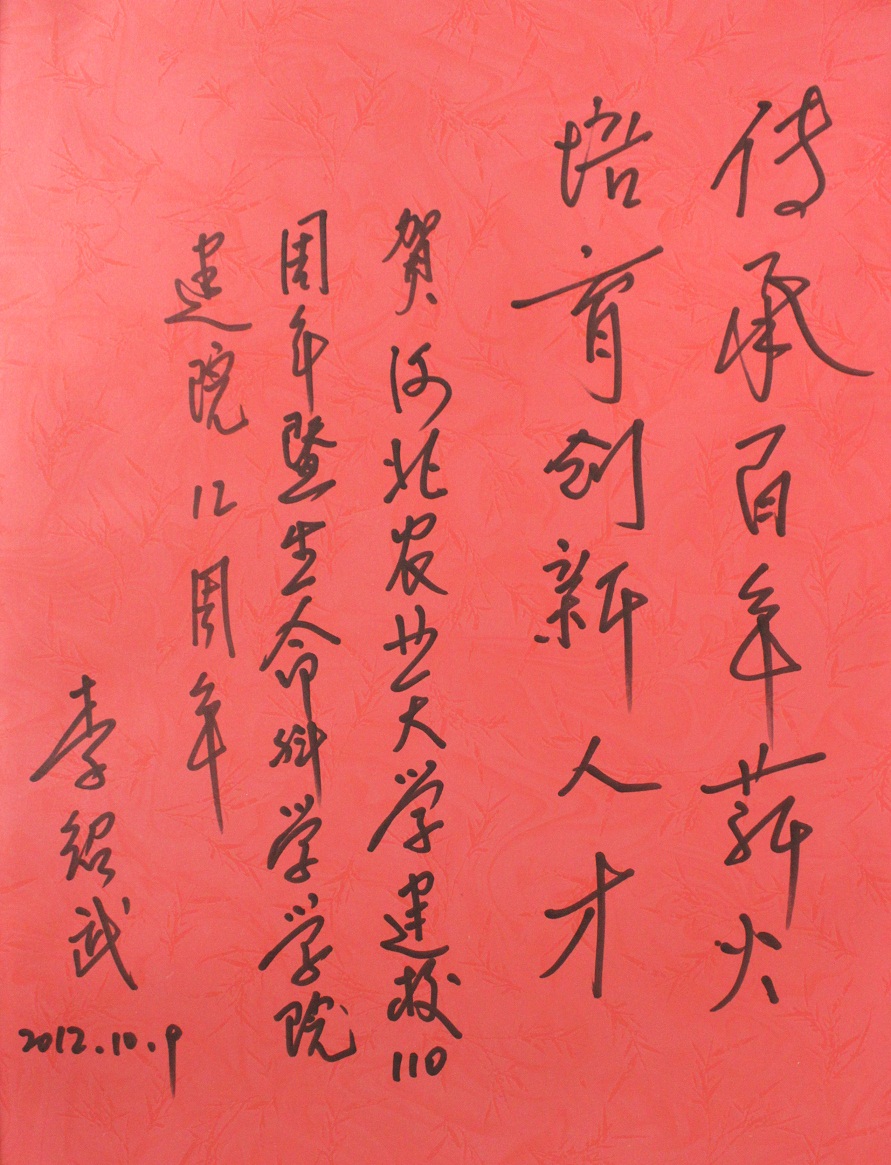 传承百年薪火
培育创新人才
贺河北农业大学建校110
周年暨生命科学学院
建院12周年
李绍武
2012.10.9